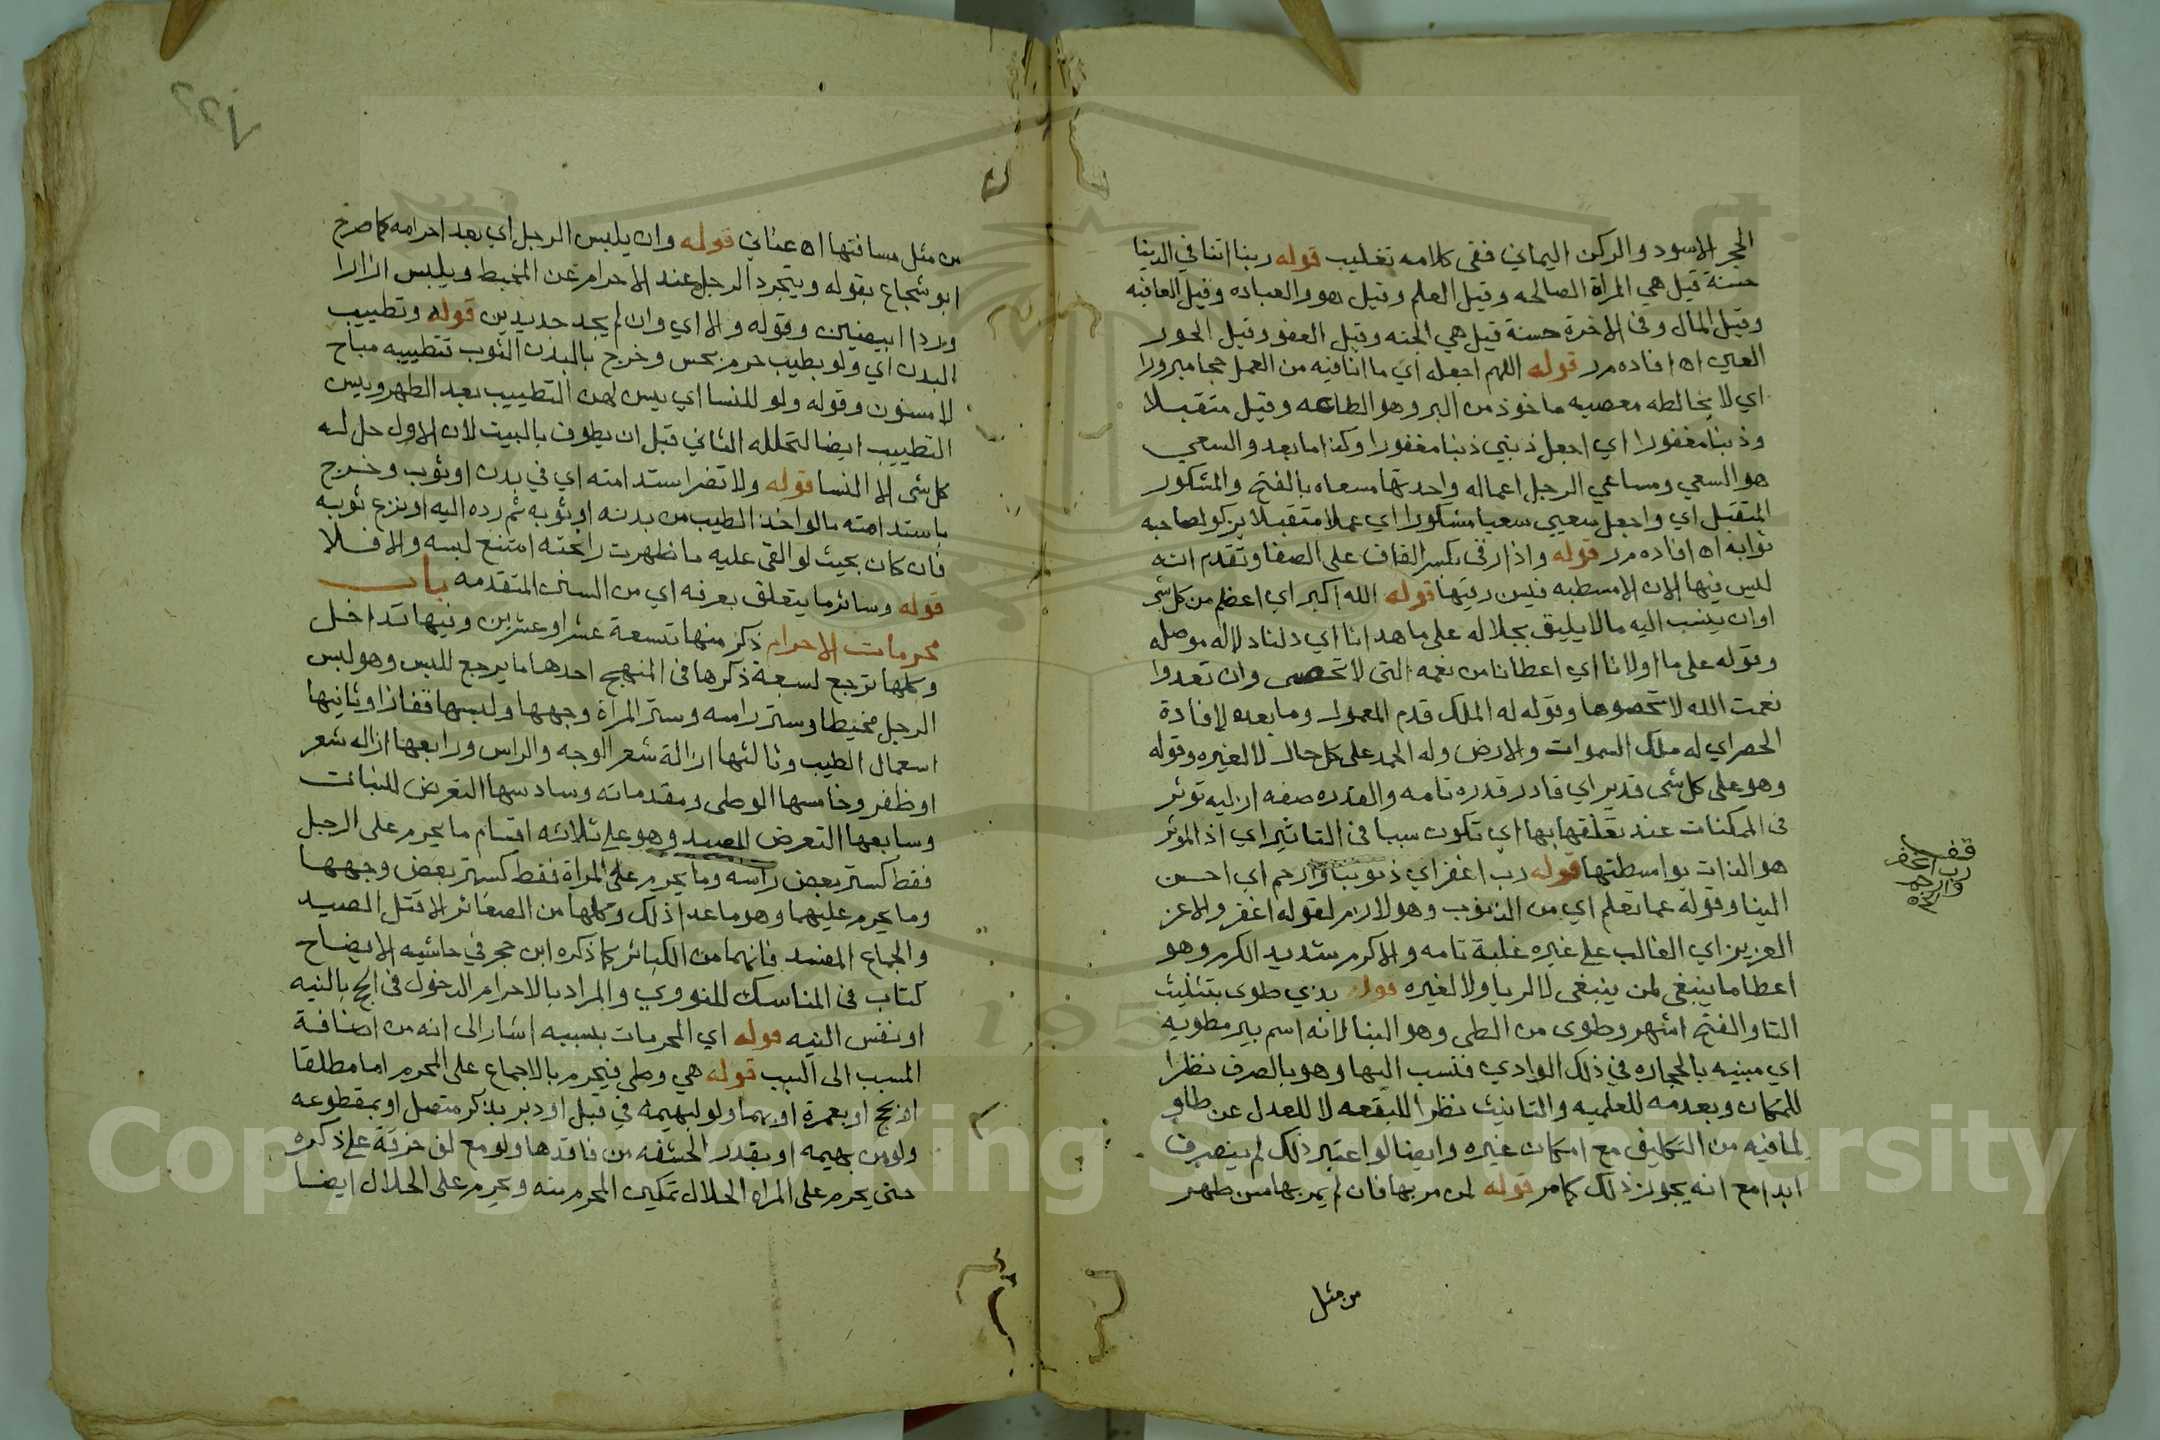 الحجر الاسود والركن اليماني ففي كلامه تغليب قوله ربنا اتنا في الدنيا
حسنة قيل هي المرأة الصالحه وقيل العلم وقيل هو والعباده وقيل العافيه
وقيل المال وفى الاخرة حسنة قيل هي الجنه وقيل العفو وقيل الحور
العين اه افاده م ر قوله اللهم اجعله اي ما انا فيه من العمل حجا مبرورا
اي لا يخالطه معصيه ماخوذ من البر وهو الطاعه وقيل متقبلا
وذنبا مغفورا اي اجعل ذنبي ذنبا مغفورا وكذا ما بعد و السعي
هو السعي ومساعي الرجل اعماله واحدتها مسعاه بالفتح والمشكور
المتقبل اي واجعل سعيي سعيا مشكورا اي عملا متقبلا يزكو لصاحبه
ثوابه اه افاده م ر قوله واذا رقى بكسر القاف على الصفا وتقدم انه
ليس فيها الان الا مسطبه فيسن رقيها قوله الله اكبر اي اعظم من كل شى
او ان ينسب اليه ما لا يليق بجلاله على ما هدانا اي دلنا دلاله موصله
وقوله على ما اولانا اي اعطانا من نعمه التى لا تحصى وان تعدوا
نعمت الله لا تحصوها وقوله له الملك قدم المعمول وما بعده لافادة
الحصر اي له ملك السموات والارض وله الحمد على كل حال لا لغيره وقوله
وهو على كل شى قدير اي قادر قدره تامه والقدره صفه ازليه توثر
فى الممكنات عند تعلقها بها اي تكون سببا فى التاثير اي اذ الموثر
هو الذات بواسطتها قوله رب اغفر اي ذنوبنا وارحم اي احسن
الينا وقوله عما تعلم اي من الذنوب وهو لازم لقوله اغفر والاعز
العزيز اي الغالب على غيره غلبة تامه والاكرم شديد الكرم وهو
اعطا ما ينبغى لمن ينبغى لا لريا ولا لغيره قوله بذي طوى بتثليث
التا والفتح اشهر وطوى من الطى وهو البنا لانه اسم بير مطويه
اي مبنيه بالحجاره في ذلك الوادي فنسب اليها وهو بالصرف نظرا
للمكان وبعدمه للعلميه والتانيث نظرا للبقعه لا للعدل عن طاو
لما فيه من التكليف مع امكان غيره وايضا لو اعتبر ذلك لم ينصرف
ابدا مع انه يجوز ذلك كما مر قوله لمن مر بها فان لم يمر بها سن طهر
من مثل
قف
رب اغفر
وارحم
من مثل مسافتها اه عناني قوله وان يلبس الرجل اي بعد احرامه كما صرح
ابو شجاع بقوله ويتجرد الرجل عند الاحرام عن المخيط ويلبس ازارا
وردا ابيضين وقوله والا اي وان لم يجد جديدين قوله وتطييب
البدن اي ولو بطيب حرم نحس وخرج بالبدن الثوب فتطييبه مباح
لا مسنون وقوله ولو للنسا اي يسن لهن التطييب بعد الطهر ويسن
التطييب ايضا لتحلله الثاني قبل ان يطوف بالبيت لان الاول حل له
كل شى الا النسا قوله ولا تضر استدامته اي في بدن او ثوب وخرج
باستدامته ما لو اخذ الطيب من بدنه او ثوبه ثم رده اليه او نزع ثوبه
فان كان بحيث لو القى عليه ما ظهرت رائحته امتنع لبسه والا فلا
قوله وسائر ما يتعلق بعرفه اي من السنن المتقدمه باب
محرمات الاحرام ذكر منها تسعة عشر او عشرين وفيها تداخل
وكلها ترجع لسبعة ذكرها فى المنهج احدها ما يرجع للبس وهو لبس
الرجل مخيطا وستر راسه وستر المرأة وجهها ولبسها قفازا وثانيها
اسعمال الطيب وثالثها ازالة شعر الوجه والراس ورابعها ازاله شعر
او ظفر وخامسها الوطى ومقدماته وسادسها التعرض للنبات
وسابعها التعرض للصيد وهو على ثلاثه اقسام ما يحرم على الرجل
فقط كستر بعض راسه وما يحرم على المراة فقط كستر بعض وجهها
وما يحرم عليهما وهو ما عدا ذلك وكلها من الصغائر الا قتل الصيد
والجماع المفسد فانهما من الكبائر كما ذكره ابن حجر في حاشيه الايضاح
كتاب فى المناسك للنووي والمراد بالاحرام الدخول فى الحج بالنيه
او نفس النيه قوله اي المحرمات بسببه اشار الى انه من اضافة
المسبب الى السبب قوله هي وطى فيحرم بالاجماع على المحرم اما مطلقا
او بحج او بعمرة او بهما ولو لبهيمه في قبل او دبر بذكر متصل او بمقطوعه
ولو من بهيمه او بقدر الحشفه من فاقدها ولو مع لف خرقة على ذكره
حتى يحرم على المراه الحلال تمكين المحرم منه ويحرم على الحلال ايضا
Copyright © King Saud University